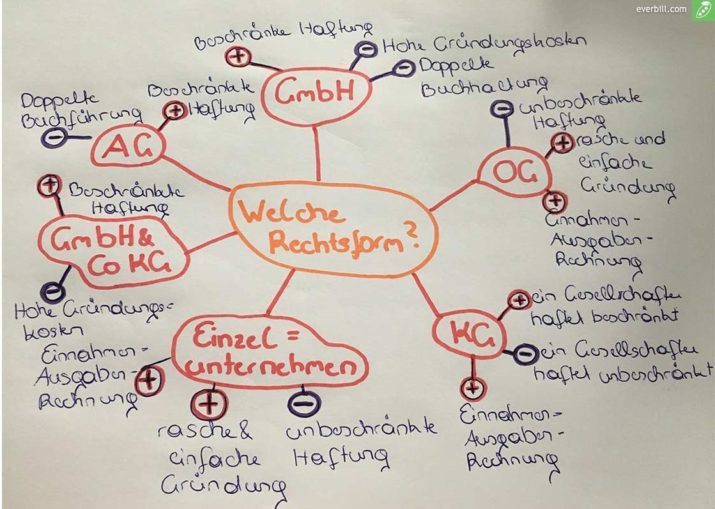 everbill.com
Beschränkte Haftung
Hohe Gründungskosten
Doppelte
Buchhaltung
GmbH
Doppelte
Buchführung
Beschränkte
Haftung
AG
unbeschränkte
Haftung
rasche und
einfache
Gründung
OG
Einnahmen-
Ausgaben-
Rechnung
Beschränkte
Haftung
GmbH &
Co KG
Hohe Gründungs=
kosten
Welche
Rechtsform?
ein Gesellschafter
haftet beschränkt
KG
ein Gesellschafter
haftet unbeschränkt
Einnahmen=
Ausgaben-
Rechnung
Einzel=
unternehmen
Einnahmen-
Ausgaben-
Rechnung
rasche &
einfache
Gründung
unbeschränkte
Haftung